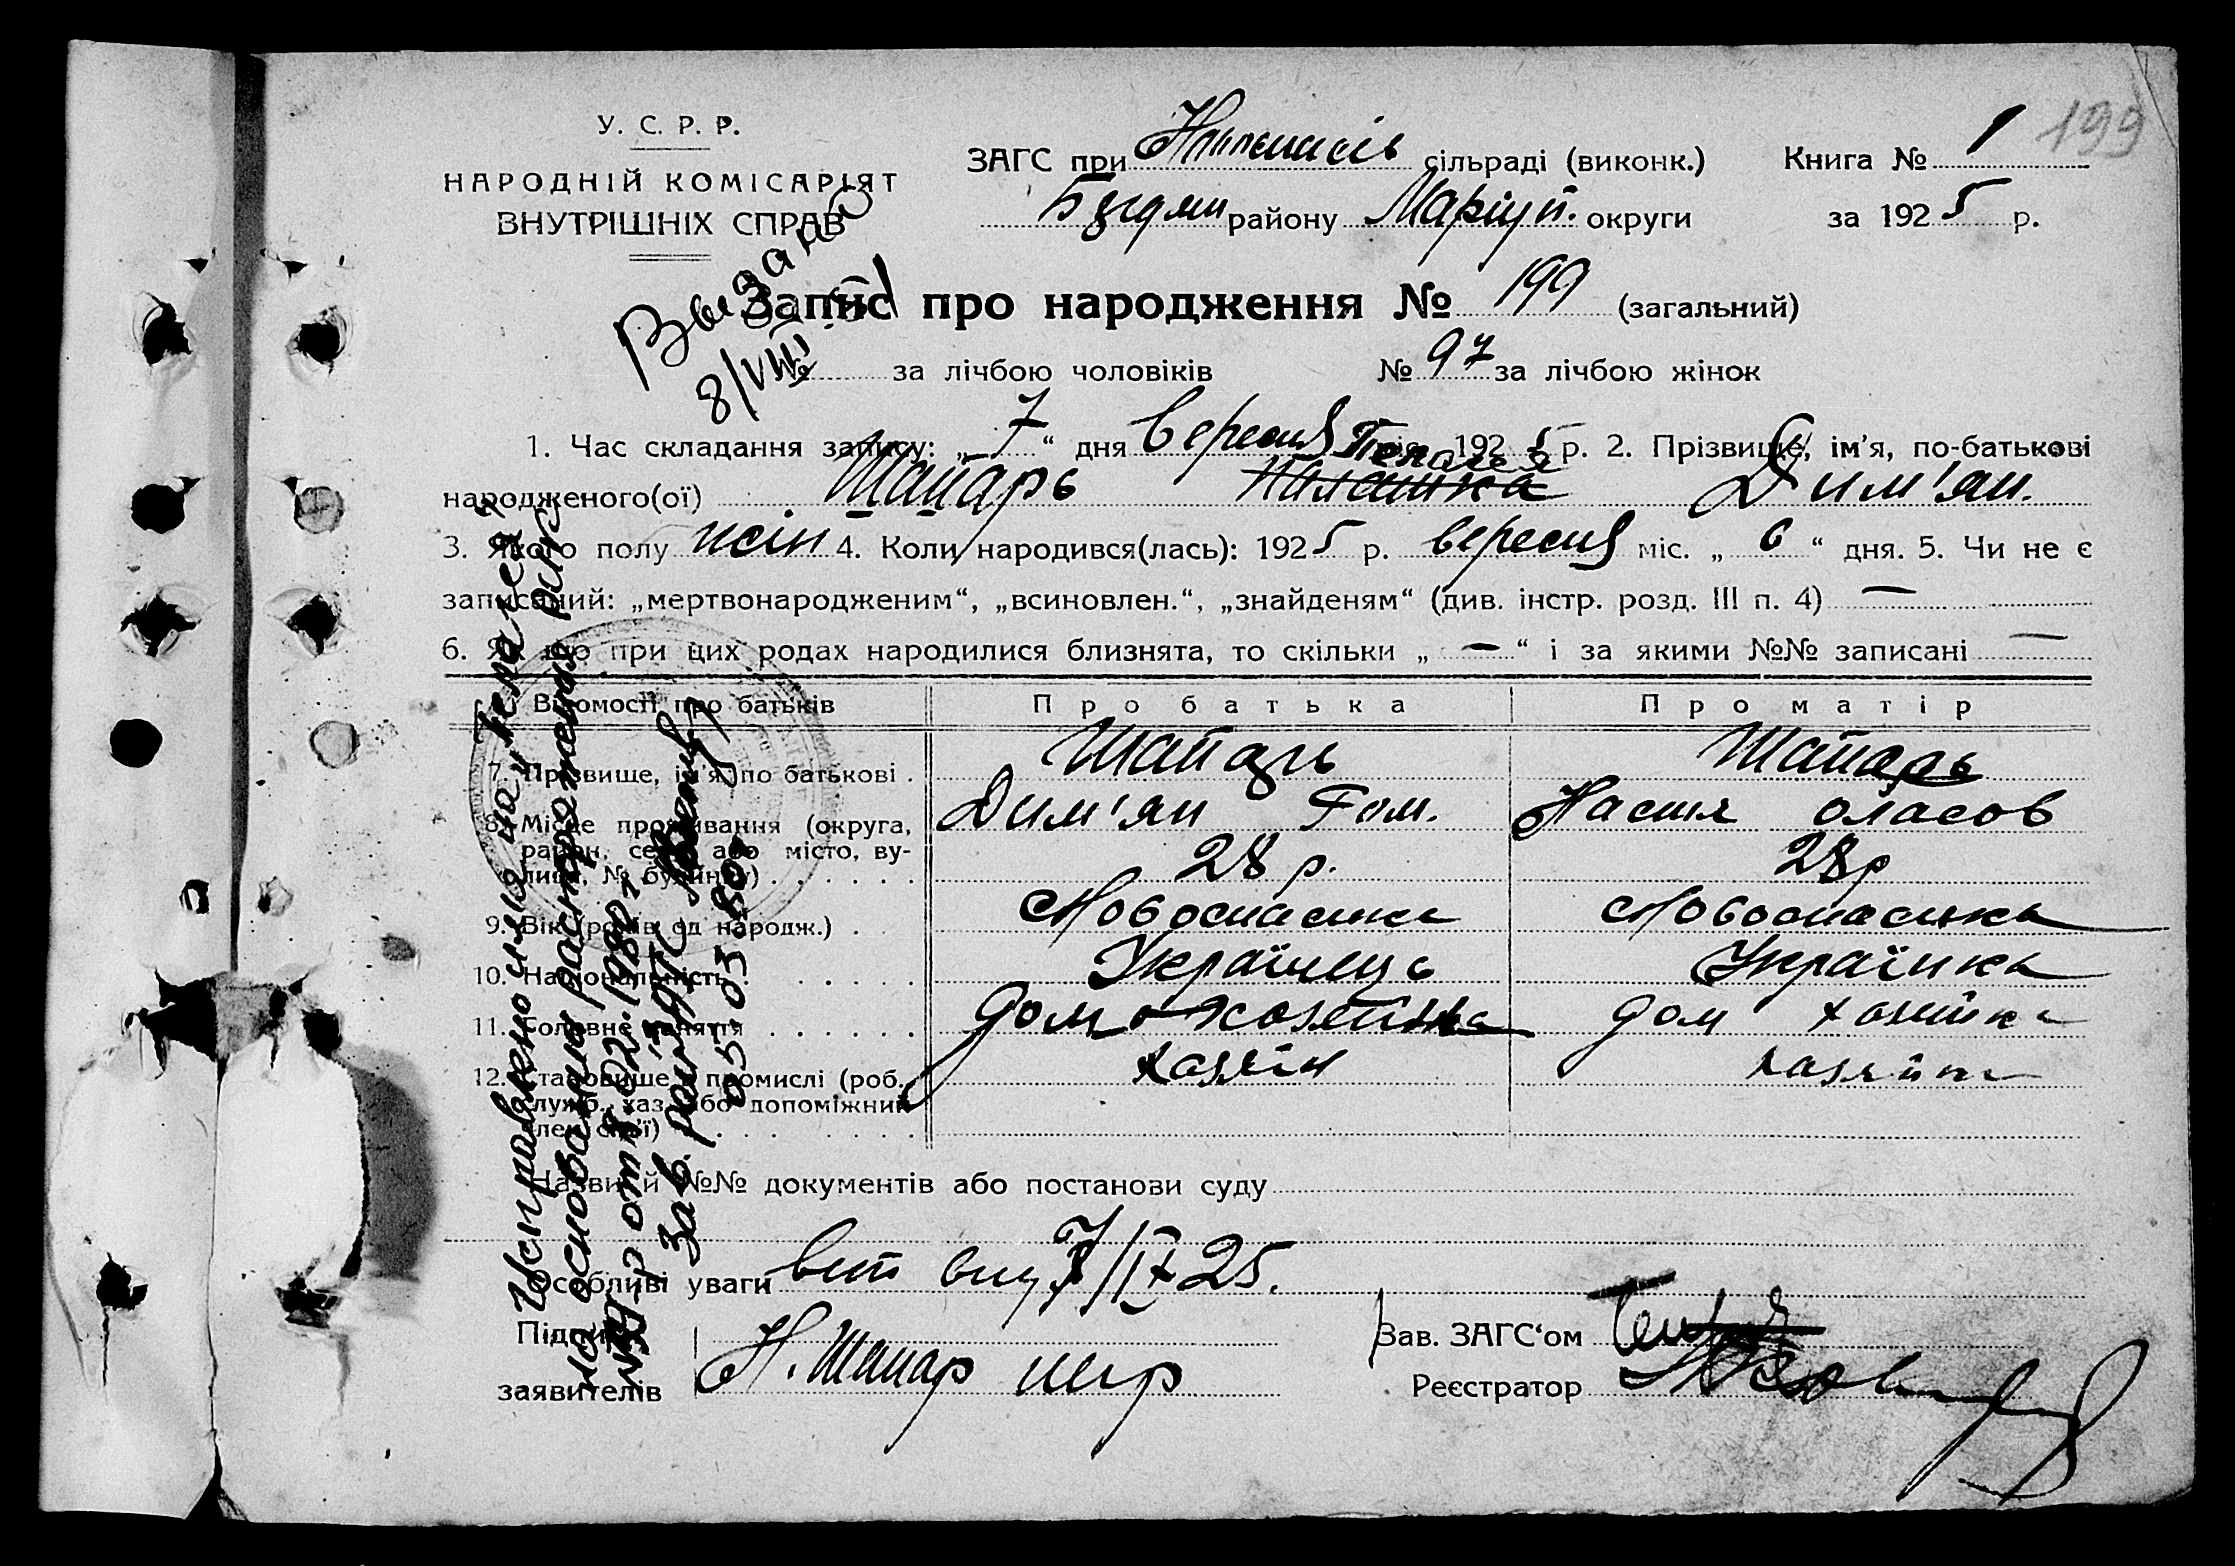 199
У. С. Р. Р.
НАРОДНІЙ КОМІСАРІЯТ
ВНУТРІШНІХ СПРАВ
ЗАГС при сільраді (виконк.) Книга № 1
району Маріуп. округи за 1925 р.
Запис про народження № 199 (загальний)
№ за лічбою чоловіків № 97 за лічбою жінок
8/VIII
1. Час складання запису: „7“ дня вересня 1925 р. 2. Прізвище, ім'я, по-батькові
Пелагея
народженого(ої) Шапарь Палашка Дим'ян.
3. Якого полу жін 4. Коли народився(лась): 1925 р. вересня міс. „6“ дня. 5. Чи не є
записаний: „мертвонародженим“, „всиновлен.“, „знайденям“ (див. інстр. розд. III п. 4) —
6. Як що при цих родах народилися близнята, то скільки „—“ і за якими №№ записані —
Відомості про батьків Про батька Про матір
7. Прізвище, ім'я, по батькові . Шапарь Шапарь
8. Місце проживання (округа, район, село або місто, вулиця, № будинку) Дим'ян Настя
28 р. 28 р
9. Вік (років од народж.) . Новоспаська Новоспаська
10. Національність . Українець Українка
11. Головне заняття дом хозяйка
12. Становище в промислі (роб., служб., хаз. або допоміжний член сім'ї) хазяїн хазяйка
Назви й №№ документів або постанови суду
Особливі уваги 7/IX 25.
Підпис заявителів Н. Шапар
Зав. ЗАГС‘ом
Реєстратор
Исправлено имя на „Пелагея“
на основании распоряжения
от 02.1980 г.
Зав. райЗАГС
05.03.80г